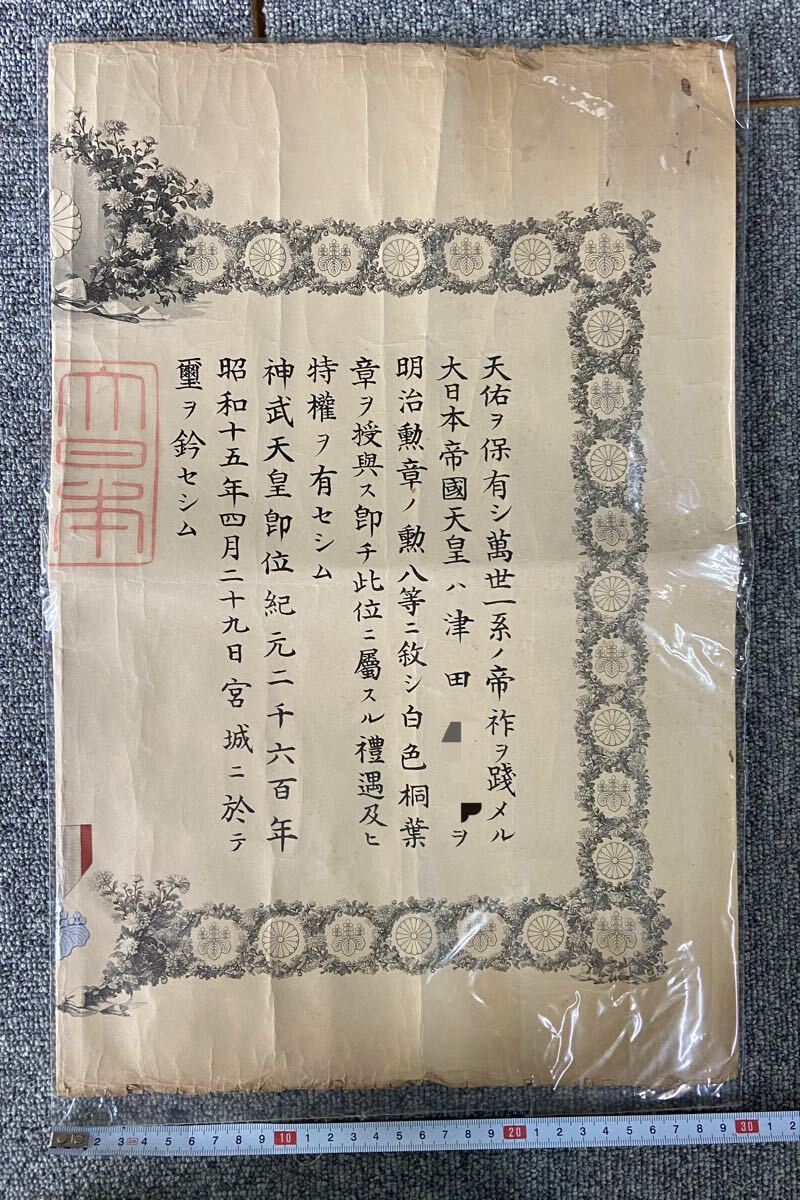 天佑ヲ保有シ萬世一系ノ帝祚ヲ踐メル
大日本帝國天皇ハ津田ヲ
明治勲章ノ勲八等ニ敘シ白色桐葉
章ヲ授與ス卽チ此位ニ屬スル禮遇及ヒ
特權ヲ有セシム
神武天皇卽位紀元二千六百年
昭和十五年四月二十九日宮城ニ於テ
璽ヲ鈐セシム
大日本
2 3 4 5 6 7 8 9 10 1 2 3 4 5 6 7 8 9 20 1 2 3 4 5 6 7 8 9 30 1 2